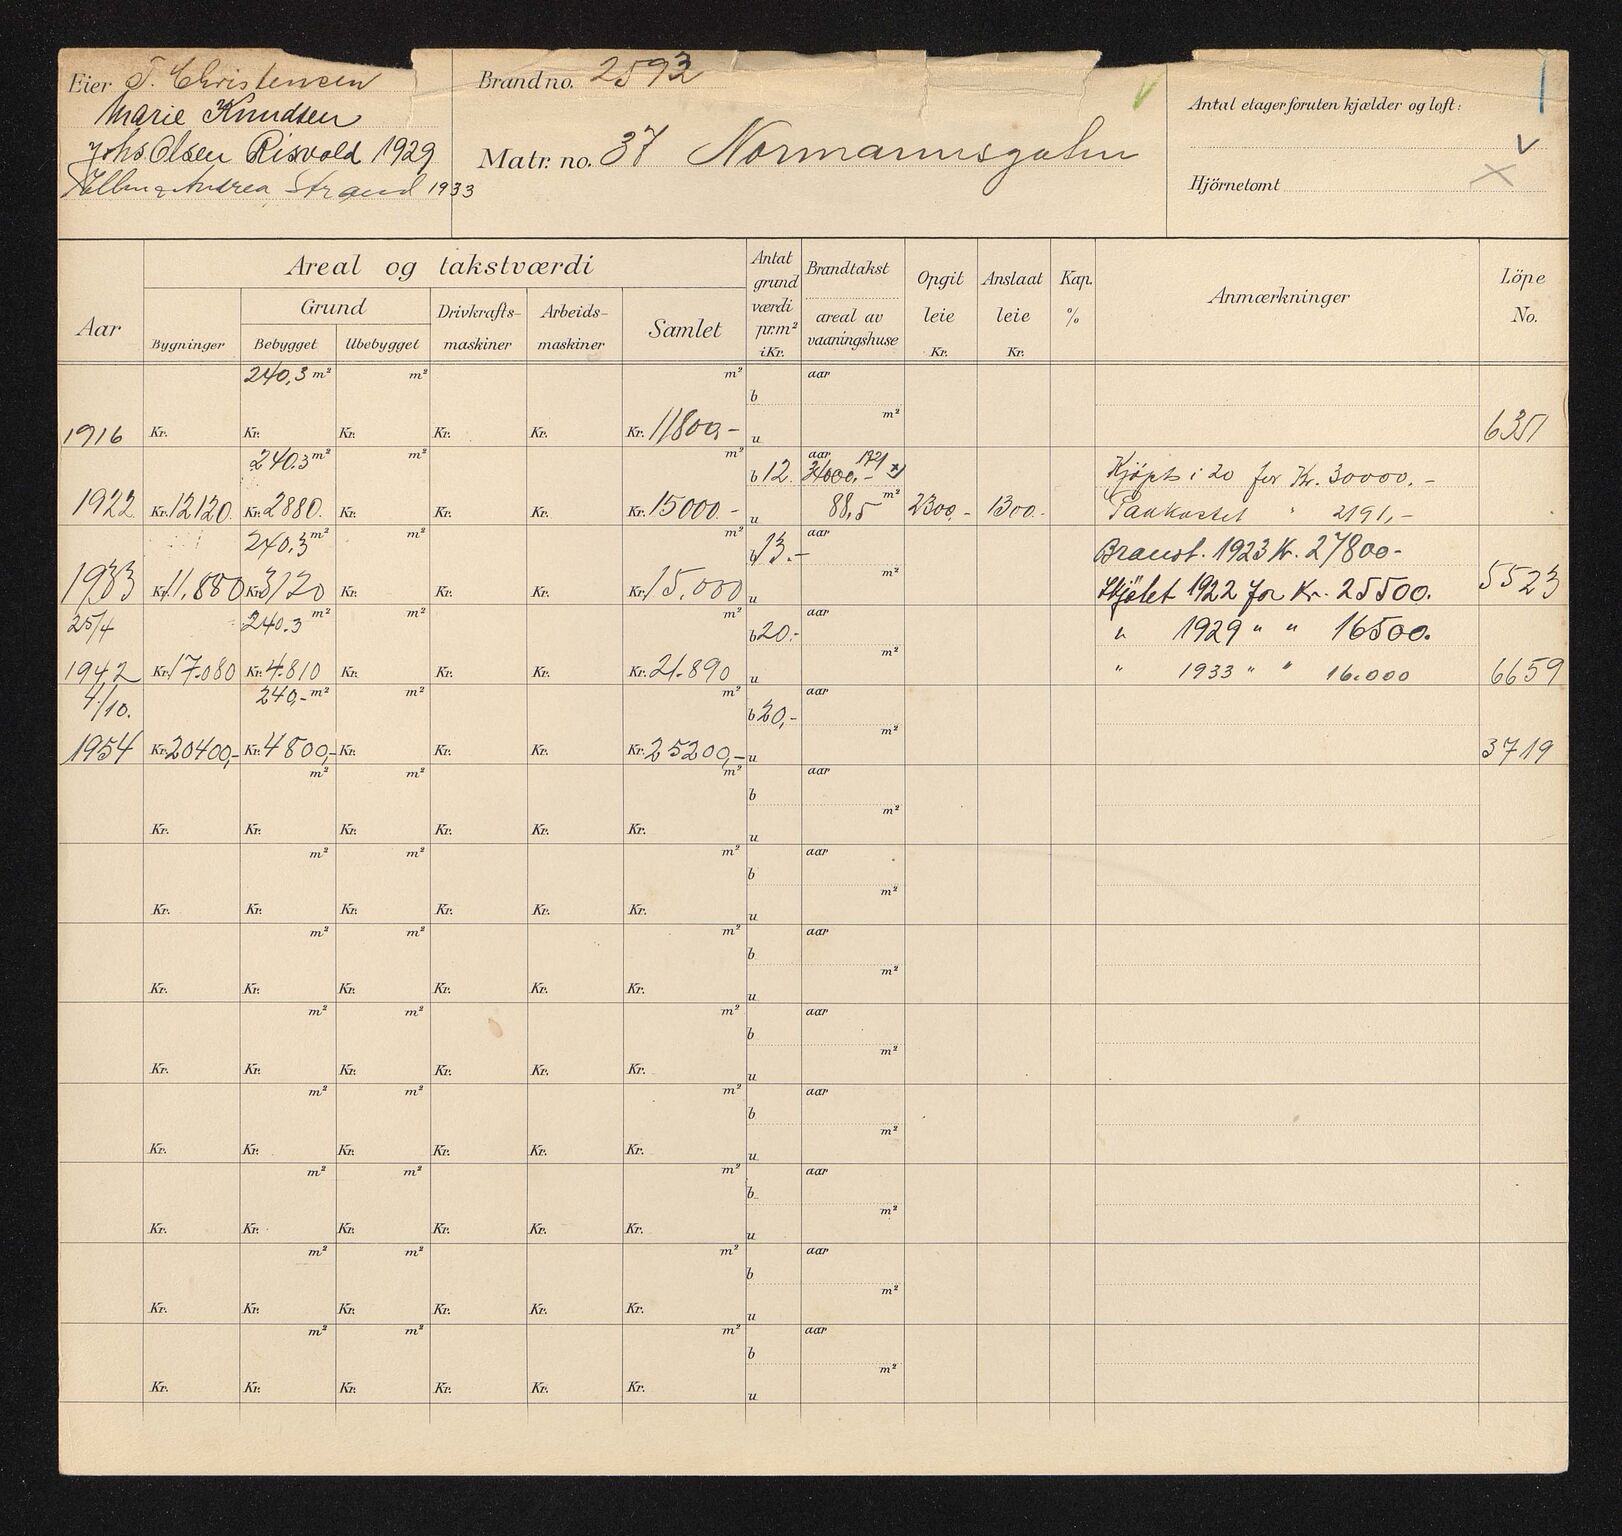 Eier T. Christensen
Marie Knudsen
Johs Olsen Risvold 1929
Andrea Strand 1933
Brandno. 2593
Matr. no. 37 Normannsgaten
Antal etager foruten kjælder og loft:
Hjörnetomt
Aar
Areal og takstværdi
Grund
Bygninger
Bebygget
Ubebygget
Drivkrafts-
maskiner
Arbeids-
maskiner
Samlet
Antat
grund
værdi
pr. m²
i Kr.
Brandtakst
areal av
vaaningshuse
Opgit
leie
Kr.
Anslaat
leie
Kr.
Kap.
%
Anmærkninger
Löpe
No.
240,3 m² m² m² aar
b
m²
1916 Kr. Kr. Kr. Kr. Kr. Kr. 11800,- u 6351
240.3 m² m² m² b 12. aar
1922 Kr. 12120. Kr. 2880. Kr. Kr. Kr. Kr. 15000.- u 88,5 m² 2300.- 1300.-
Kjøpt i 20 for Kr. 30000.-
" 2191,-
240.3 m² m² m² b 13.- aar
Branst. 1923 Kr. 27800-
m²
1933 Kr. 11,880 Kr. 3120 Kr. Kr. Kr. Kr. 15,000 u Skjøtet 1922 for Kr. 25500. 5523
25/4 240.3 m² m² m² b 20.- aar
" 1929 " " 16500.
m²
1942 Kr. 17.080 Kr. 4.810 Kr. Kr. Kr. Kr. 21.890 u " 1933 " " 16.000 6659
4/10. 240,- m² m² m² b 20,- aar
m²
1954 Kr. 20400,- Kr. 4800,- Kr. Kr. Kr. Kr. 25200,- u 3719
m² m² m² aar
b
m²
Kr. Kr. Kr. Kr. Kr. Kr. u
m² m² m² aar
b
m²
Kr. Kr. Kr. Kr. Kr. Kr. u
m² m² m² aar
b
m²
Kr. Kr. Kr. Kr. Kr. Kr. u
m² m² m² aar
b
m²
Kr. Kr. Kr. Kr. Kr. Kr. u
m² m² m² aar
b
m²
Kr. Kr. Kr. Kr. Kr. Kr. u
m² m² m² aar
b
m²
Kr. Kr. Kr. Kr. Kr. Kr. u
m² m² m² aar
b
m²
Kr. Kr. Kr. Kr. Kr. Kr. u
m² m² m² aar
b
m²
Kr. Kr. Kr. Kr. Kr. Kr. u